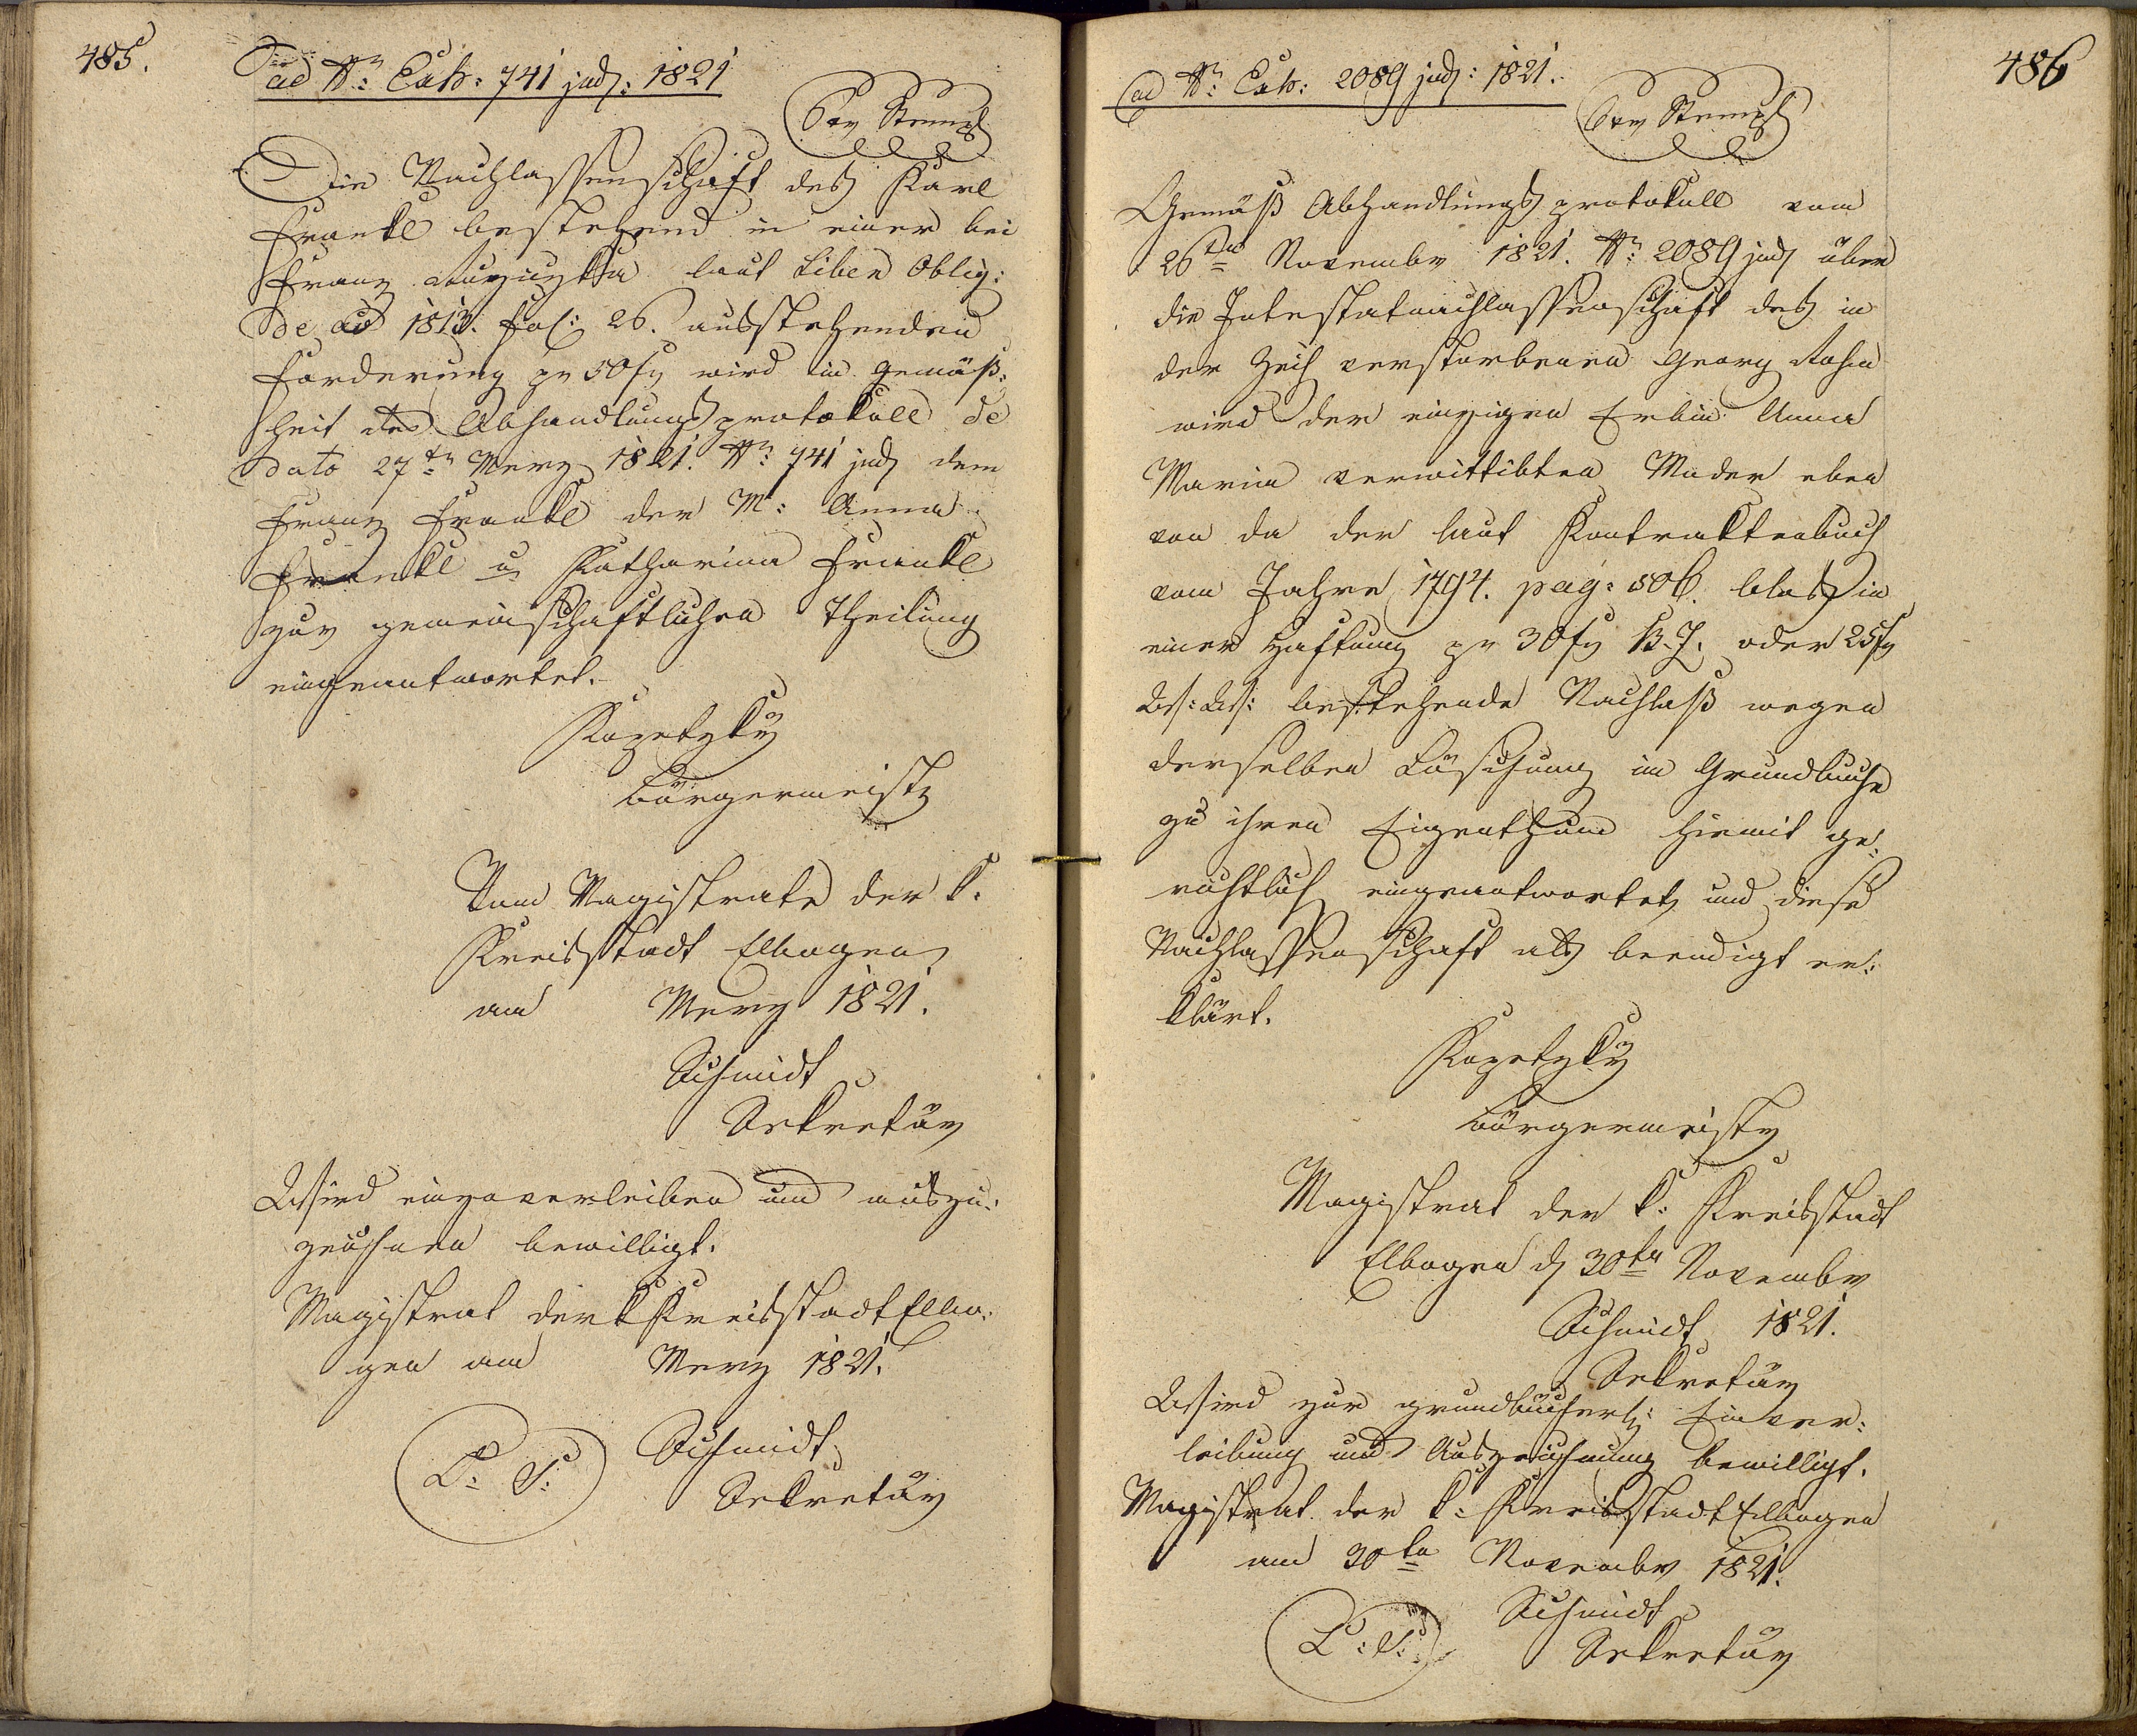 485.
ad Nr: Exh: 741 jud: 1821
6 xr Stempl
Die Nachlassenschaft des Karl
Frankl bestehend in einer bei
Franz laut Liber Oblig:
de ao 1813. fol: 26. ausstehenden
Forderung pr 50 fl wird in Gemäß:
heit des Abhandlungsprotokoll de
dato 27tn Merz 1821. Nr: 741 jud dem
Franz Frankl der M: Anna
Frankl u Katharina Frankl
zur gemeinschaftlichen Theilung
eingeantwortet.
Kozetzky
Bürgermeister
Vom Magistrate der k.
Kreisstadt Elbogen
am Merz 1821.
Schmidt
Sekretär
Wird einzuverleiben und auszu:
zeichnen bewilligt.
Magistrat der k Kreisstadt Elbo:
gen am Merz 1821.
L: S: Schmidt
Sekretär
486
ad Nr: Exh: 2089 jud: 1821.
6 xr Stempl
Gemäß Abhandlungsprotokoll vom
26ten November 1821. Nr: 2089 jud über
die Intestatnachlassenschaft des in
der Zech verstorbenen Georg
wird der einzigen Erbin Anna
Maria verwittibten Mader eben
von da der laut Kontraktenbuch
vom Jahre 1794. pag: 506. blos in
einer Haftung pr 30 fl B.Z. oder 25 fl
W: W: bestehende Nachlaß wegen
derselben Löschung im Grundbuche
zu ihren Eigenthum hiemit ge:
richtlich eingeantwortet, und diese
Nachlassenschaft als beendigt er:
klärt.
Kozetzky
Bürgermeister
Magistrat der k: Kreisstadt
Elbogen d 30ten November
Schmidt 1821.
Sekretär
Wird zur grundbücherl: Einver:
leibung und Auszeichnung bewilligt.
Magistrat der k: Kreisstadt Elbogen
am 30ten November 1821.
L: S: Schmidt
Sekretär